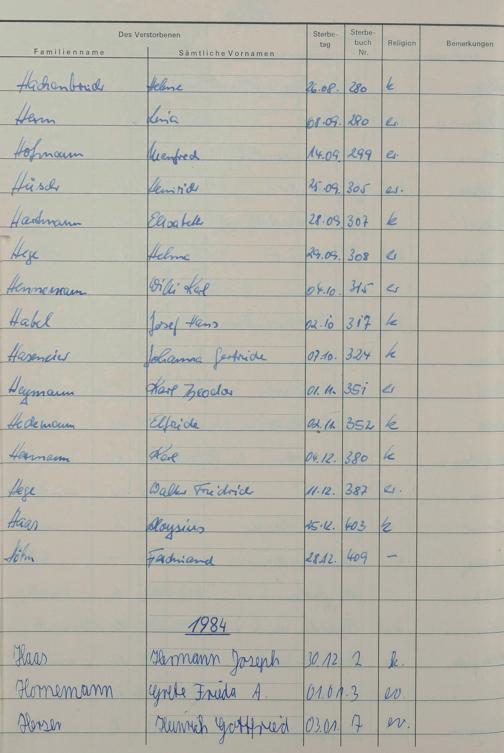 Des Verstorbenen Sterbe- Sterbe- Religion Bemerkungen
Familienname Sämtliche Vornamen tag buch Nr.
Hachenbruch Helene 26.08. 280 k
Herm Lina 08.09. 290 ev.
Hofmann Manfred 14.09. 299 ev.
Hüsch Heinrich 25.09. 305 ev.
Hartmann Elisabeth 28.09 307 k
Hege Helma 29.09. 308 ev
Hennemann Willi Karl 04.10. 315 ev
Habel Josef Hans 02.10 317 k
Johanna Gertrude 07.10. 324 k
Heymann Karl 01.11. 351 ev
Hedemann Elfride 02.11. 352 k
Hermann Karl 04.12. 380 k
Hege Walter Friedrich 11.12. 387 ev.
Haas Aloysius 25.12. 403 k
Höhn Ferdinand 28.12. 409 –
1984
Haas Hermann Joseph 30.12 2 k.
Hornemann Grete Frieda A. 01.01. 3 ev.
Heinrich Gottfried 03.01. 7 ev.